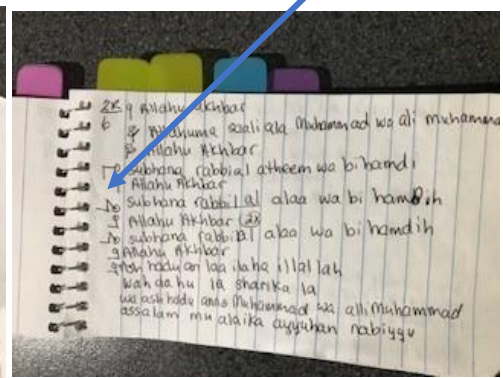 2x 9 Allahu akhbar
6
8 Allahuma saali ala Muhammad wa ali muhammad
8 Allahu Akhbar
subhana rabbial atheem wa bihamdi
Allahu Akhbar
10 subhana rabbil al alaa wa bi hamdih
9 Allahu Akhbar (2x)
10 subhana rabbil al alaa wa bi hamdih
9 Allahu Akhbar
9 Ash hadu an laa ilaha illallah
wah da hu la sharika la
wa ash hadu anna Muhammad wa alli Muhammad
assalam mu alaika ayyuhan nabiyyu